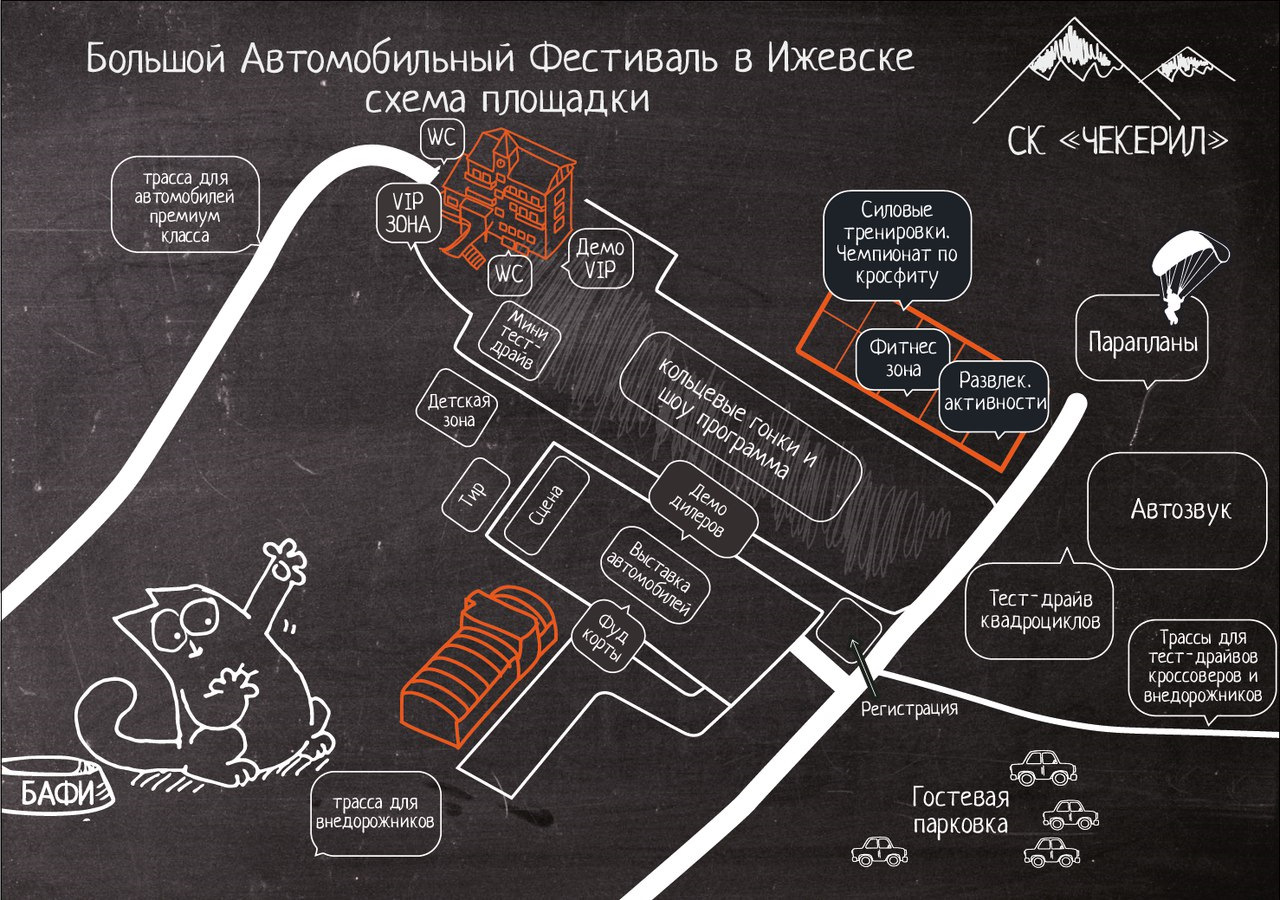 Большой Автомобильный Фестиваль в Ижевске
схема площадки
СК «ЧЕКЕРИЛ»
WC
трасса для
автомобилей
премиум
класса
VIP
ЗОНА
WC
Демо
VIP
Силовые
тренировки.
Чемпионат по
кросфиту
Мини
тест-
драйв
кольцевые гонки и
шоу программа
Фитнес
зона
Развлек.
активности
Парапланы
Детская
зона
Тир
Сцена
Демо
дилеров
Выставка
автомобилей
Автозвук
Фуд
корты
Тест-драйв
квадроциклов
Трассы для
тест-драйвов
кроссоверов и
внедорожников
Регистрация
БАФИ
трасса для
внедорожников
Гостевая
парковка